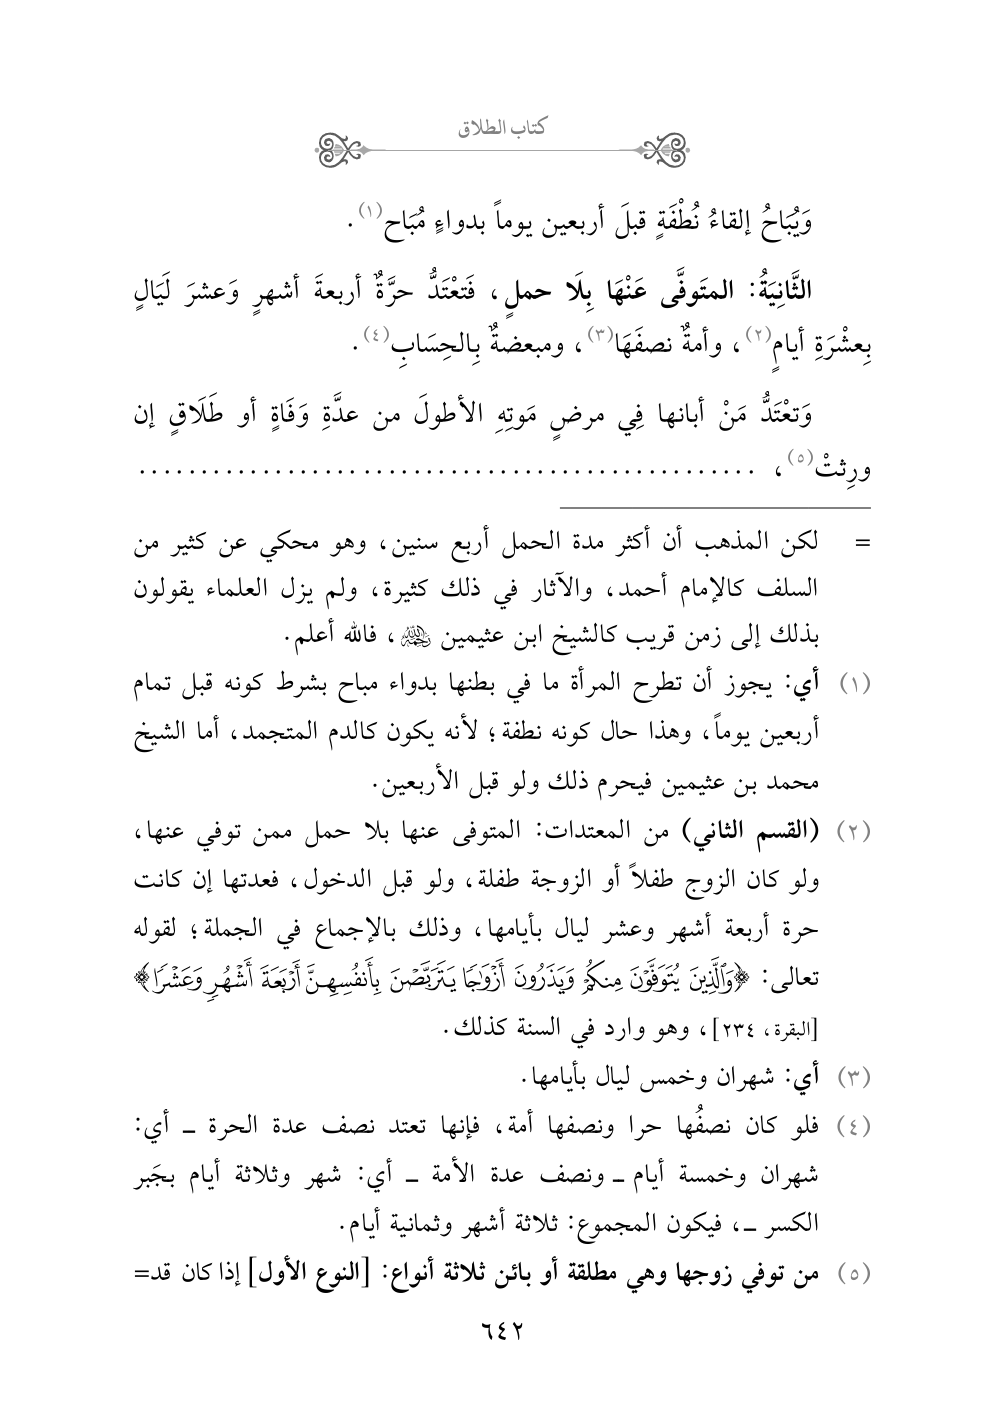 كتاب الطلاق
وَيُبَاحُ إلقاءُ نُطْفَةٍ قبلَ أربعين يوماً بدواءٍ مُبَاح(١).
الثَّانِيَةُ: المتَوفَّى عَنْهَا بِلَا حملٍ، فَتعْتَدُّ حرَّةٌ أربعةَ أشهرٍ وَعشرَ لَيَالٍ
بِعشْرَةِ أيامٍ(٢)، وأمةٌ نصفَهَا(٣)، ومبعضةٌ بِالحِسَابِ(٤).
وَتعْتَدُّ مَنْ أبانها فِي مرضٍ مَوتِهِ الأطولَ من عدَّةِ وَفَاةٍ أو طَلَاقٍ إن
ورِثتْ(٥)، ..................................................
= لكن المذهب أن أكثر مدة الحمل أربع سنين، وهو محكي عن كثير من
السلف كالإمام أحمد، والآثار في ذلك كثيرة، ولم يزل العلماء يقولون
بذلك إلى زمن قريب كالشيخ ابن عثيمين رحمه الله، فالله أعلم.
(١) أي: يجوز أن تطرح المرأة ما في بطنها بدواء مباح بشرط كونه قبل تمام
أربعين يوماً، وهذا حال كونه نطفة؛ لأنه يكون كالدم المتجمد، أما الشيخ
محمد بن عثيمين فيحرم ذلك ولو قبل الأربعين.
(٢) (القسم الثاني) من المعتدات: المتوفى عنها بلا حمل ممن توفي عنها،
ولو كان الزوج طفلاً أو الزوجة طفلة، ولو قبل الدخول، فعدتها إن كانت
حرة أربعة أشهر وعشر ليال بأيامها، وذلك بالإجماع في الجملة؛ لقوله
تعالى: ﴿وَٱلَّذِينَ يُتَوَفَّوْنَ مِنكُمْ وَيَذَرُونَ أَزْوَٰجًا يَتَرَبَّصْنَ بِأَنفُسِهِنَّ أَرْبَعَةَ أَشْهُرٍ وَعَشْرًا﴾
[البقرة، ٢٣٤]، وهو وارد في السنة كذلك.
(٣) أي: شهران وخمس ليال بأيامها.
(٤) فلو كان نصفُها حرا ونصفها أمة، فإنها تعتد نصف عدة الحرة ـ أي:
شهران وخمسة أيام ـ ونصف عدة الأمة ـ أي: شهر وثلاثة أيام بجَبر
الكسر ـ، فيكون المجموع: ثلاثة أشهر وثمانية أيام.
(٥) من توفي زوجها وهي مطلقة أو بائن ثلاثة أنواع: [النوع الأول] إذا كان قد=
٦٤٢